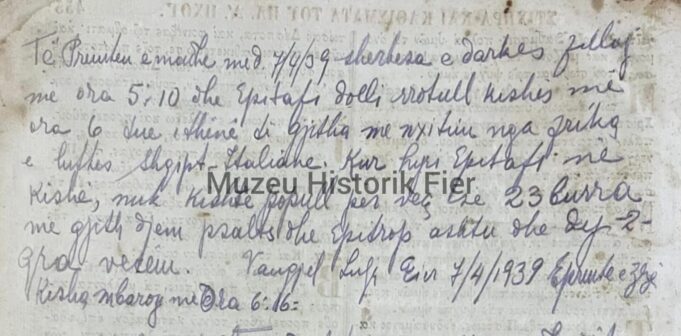 ΣΤΙΧΗΡΑ ΚΑΙ ΚΑΘΙΣΜΑΤΑ ΤΟΥ ΠΛ. Α΄ ΗΧΟΥ.
Të Premten e madhe me d. 7/4/39 sherbesa e darkës filloj
me ora 5:10 dhe Epitafi dolli rrotull kishes më
ora 6 due ithënë di gjitha me nxitim nga frika
e luftës Shqipt-Italiane. Kur hyri Epitafi në
Kishë, nuk kishte popull për veç se 23 burra
me gjith djem psalts dhe Epitrop ashtu dhe dy-2-
gra vetëm. Vangjel 7/4/1939 Epremte e zezë
Kisha mbaroj me Ora 6:16=
Muzeu Historik Fier